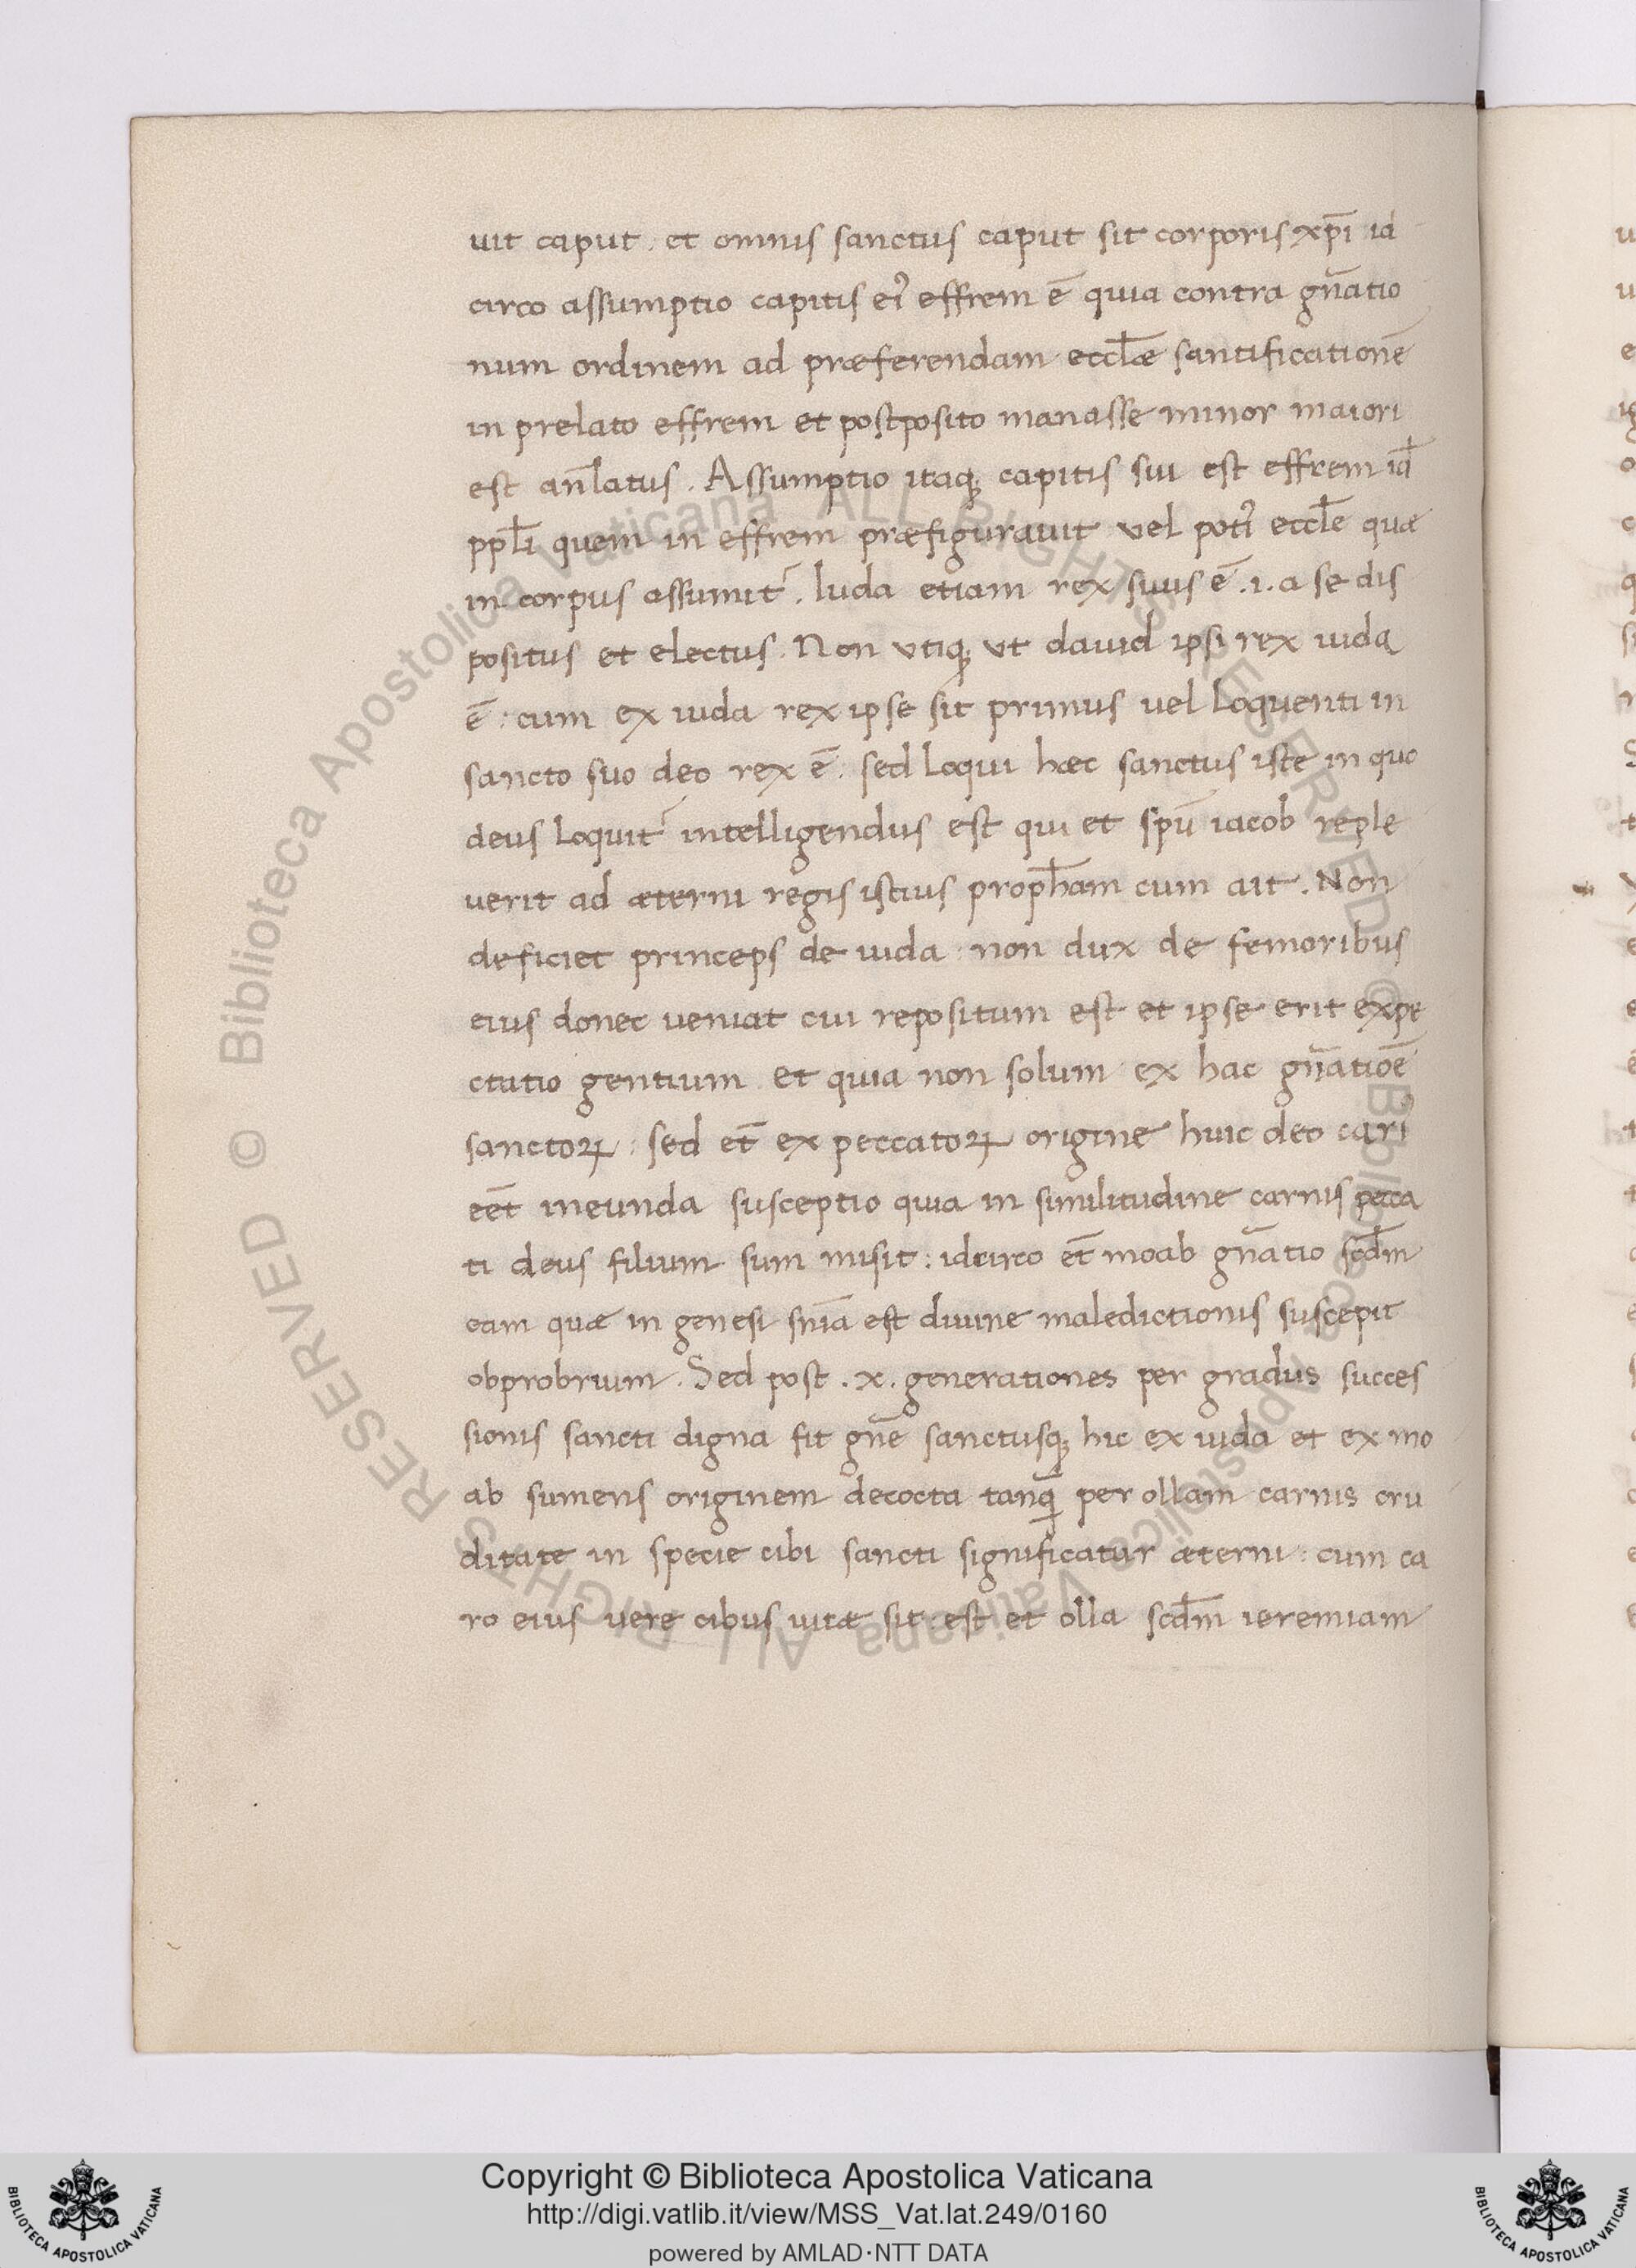 uit caput. et omnis sanctus caput sit corporis xp̄i id
circo assumptio capitis eiꝰ effrem ē quia contra gn̄atio
num ordinem ad præferendam eccl̄æ santificationē
in prelato effrem et postposito manasse minor maiori
est an̄latus. Assumptio itaqꝫ capitis sui est effrem id̄
ppl̄i quem in effrem præfigurauit vel potiꝰ eccl̄e quæ
in corpus assumit᷑. Iuda etiam rex suus ē .i. a se dis
positus et electus. Non vtiqꝫ vt dauid ipsi rex iuda
ē: cum ex iuda rex ipse sit primus uel loquenti in
sancto suo deo rex ē: sed loqui hæc sanctus iste in quo
deus loquit᷑ intelligendus est qui et spū iacob reple
uerit ad æterni regis istius proph̄am cum ait. Non
deficiet princeps de iuda: non dux de femoribus
eius donec ueniat cui repositum est et ipse erit expe
ctatio gentium et quia non solum ex hac gn̄atiōe
sanctoꝝ: sed et̄ ex peccatoꝝ origine huic deo cari
eēt ineunda susceptio quia in similitudine carnis pecca
ti deus filium sum misit: idcirco et̄ moab gn̄atio scd̄m
eam quæ in genesi sn̄ia est diuine maledictionis suscepit
obprobrium. Sed post .x. generationes per gradus succes
sionis sancti digna fit gn̄e sanctusqꝫ hic ex iuda et ex mo
ab sumens originem decocta tanꝗ̄ per ollam carnis cru
ditate in specie cibi sancti significatur æterni: cum ca
ro eius vere cibus uitæ sit: est et olla scd̄m ieremiam
Copyright © Biblioteca Apostolica Vaticana
http://digi.vatlib.it/view/MSS_Vat.lat.249/0160
powered by AMLAD·NTT DATA